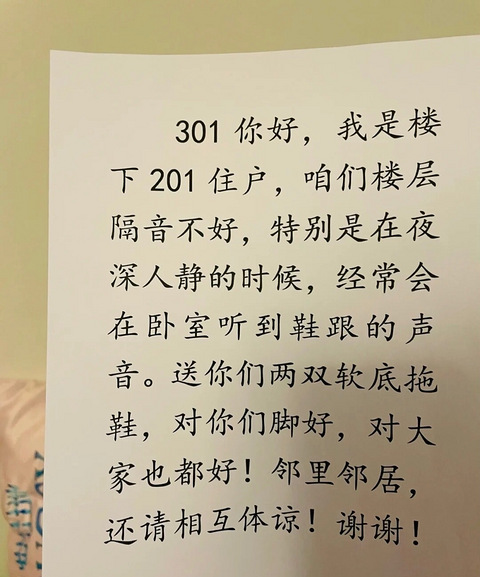 301 你好，我是楼
下 201 住户，咱们楼层
隔音不好，特别是在夜
深人静的时候，经常会
在卧室听到鞋跟的声
音。送你们两双软底拖
鞋，对你们脚好，对大
家也都好！邻里邻居，
还请相互体谅！谢谢！